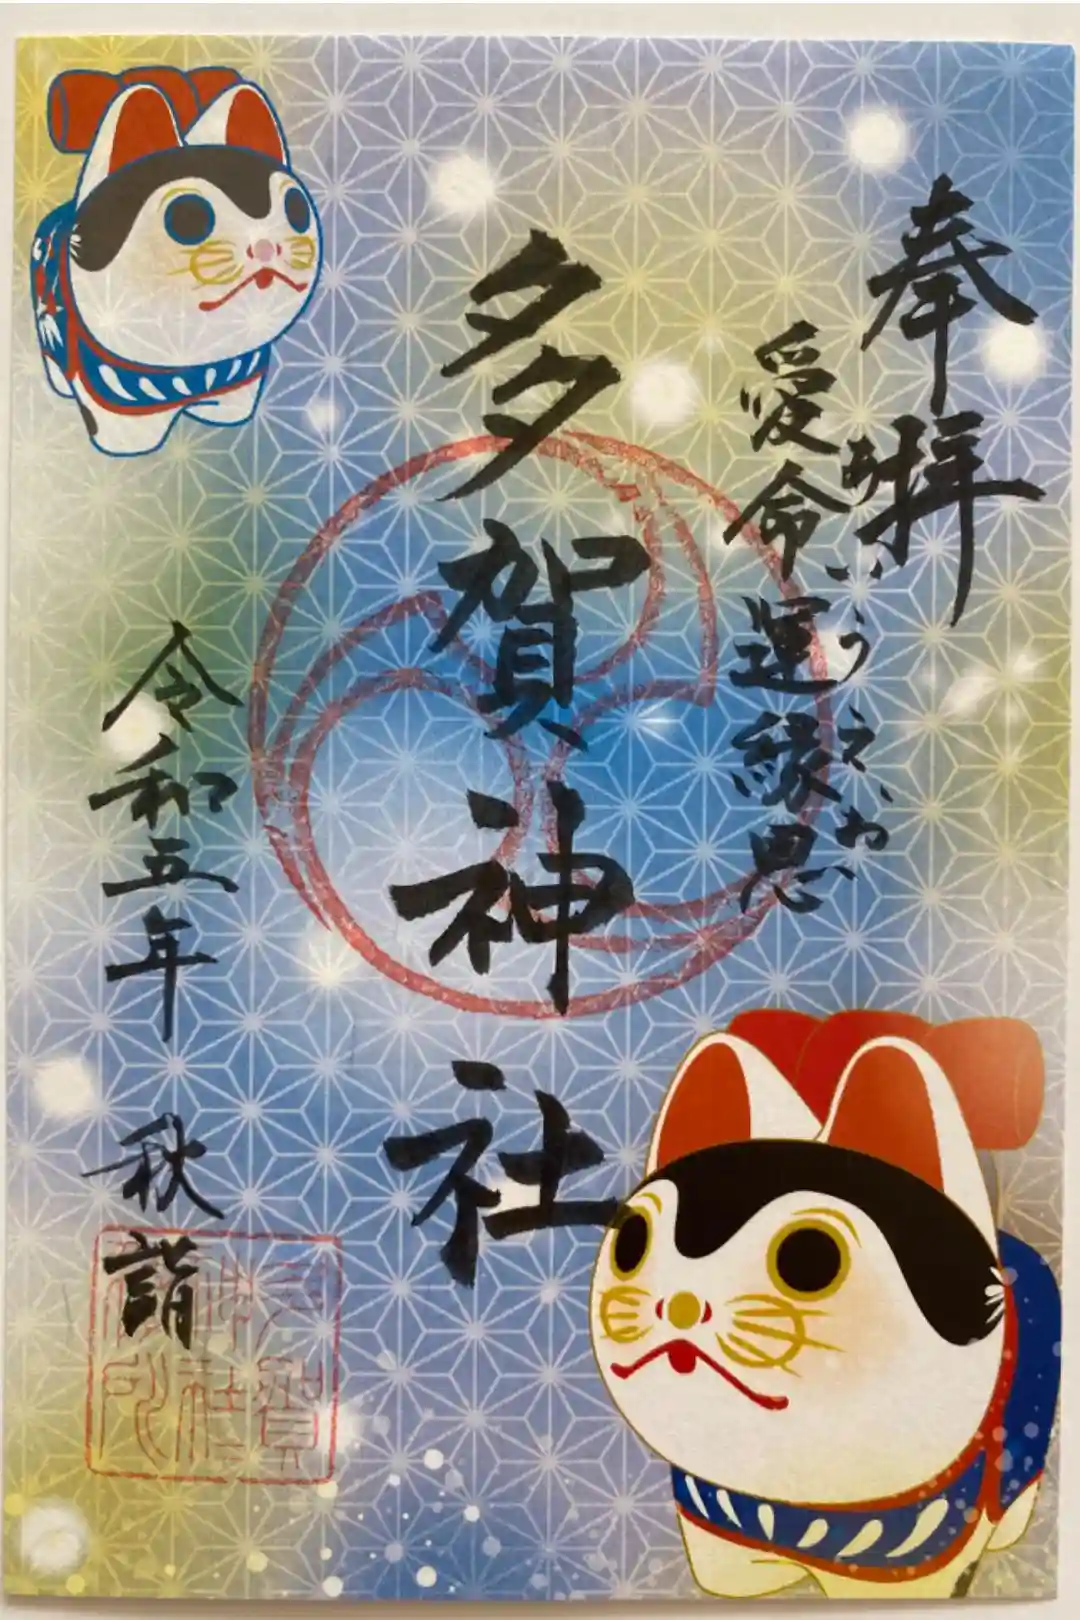 奉拝
あいうえお
愛命運縁恩
多賀神社
令和五年 秋詣
多賀
神社